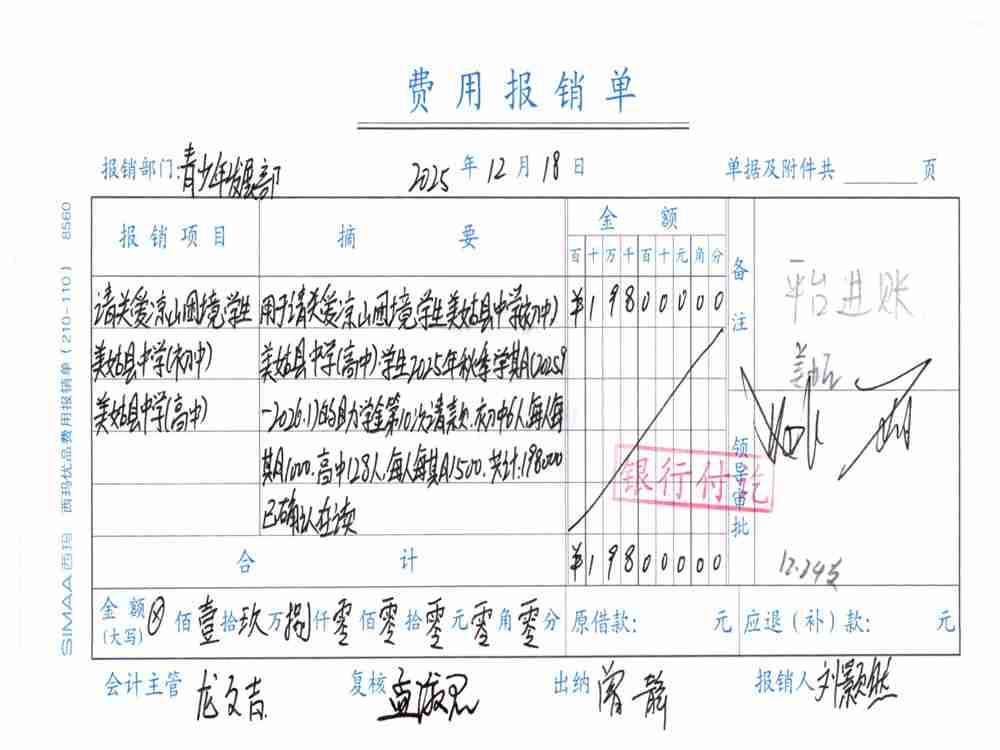 费用报销单
报销部门:青少年发展部 2025年12月18日 单据及附件共 页
报销项目 摘要 金额 备注
百十万千百十元角分
请关爱凉山困境学生 用于请关爱凉山困境学生美姑县中学(初中) ¥19800000 平台进账
美姑县中学(初中) 美姑县中学(高中)学生2025年秋季学期(2025.9 美姑
美姑县中学(高中) -2026.1)的助学金第10次请款.初中6人,每人每
期1000.高中128人.每人每期1500.共计:198000
已确认在读
银行付讫
领导审批
12.24支
合计 ¥19800000
金额(大写)⊗佰壹拾玖万捌仟零佰零拾零元零角零分 原借款: 元 应退(补)款: 元
会计主管 龙文吉 复核 孟淑思 出纳 曾静 报销人 刘颢然
SIMAA西玛 西玛优品费用报销单(210-110) 8560